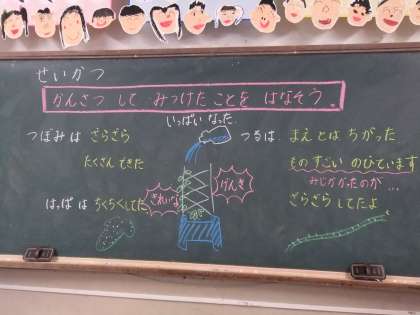 せいかつ
かんさつ して みつけた ことを はなそう。
いっぱい なった
つぼみ は ざらざら
たくさん できた
はっぱ は ちくちくしてた
きれいな
げんき
つるは まえ とは ちがった
ものすごい のびています
みじかかったのが…
ざらざら してたよ